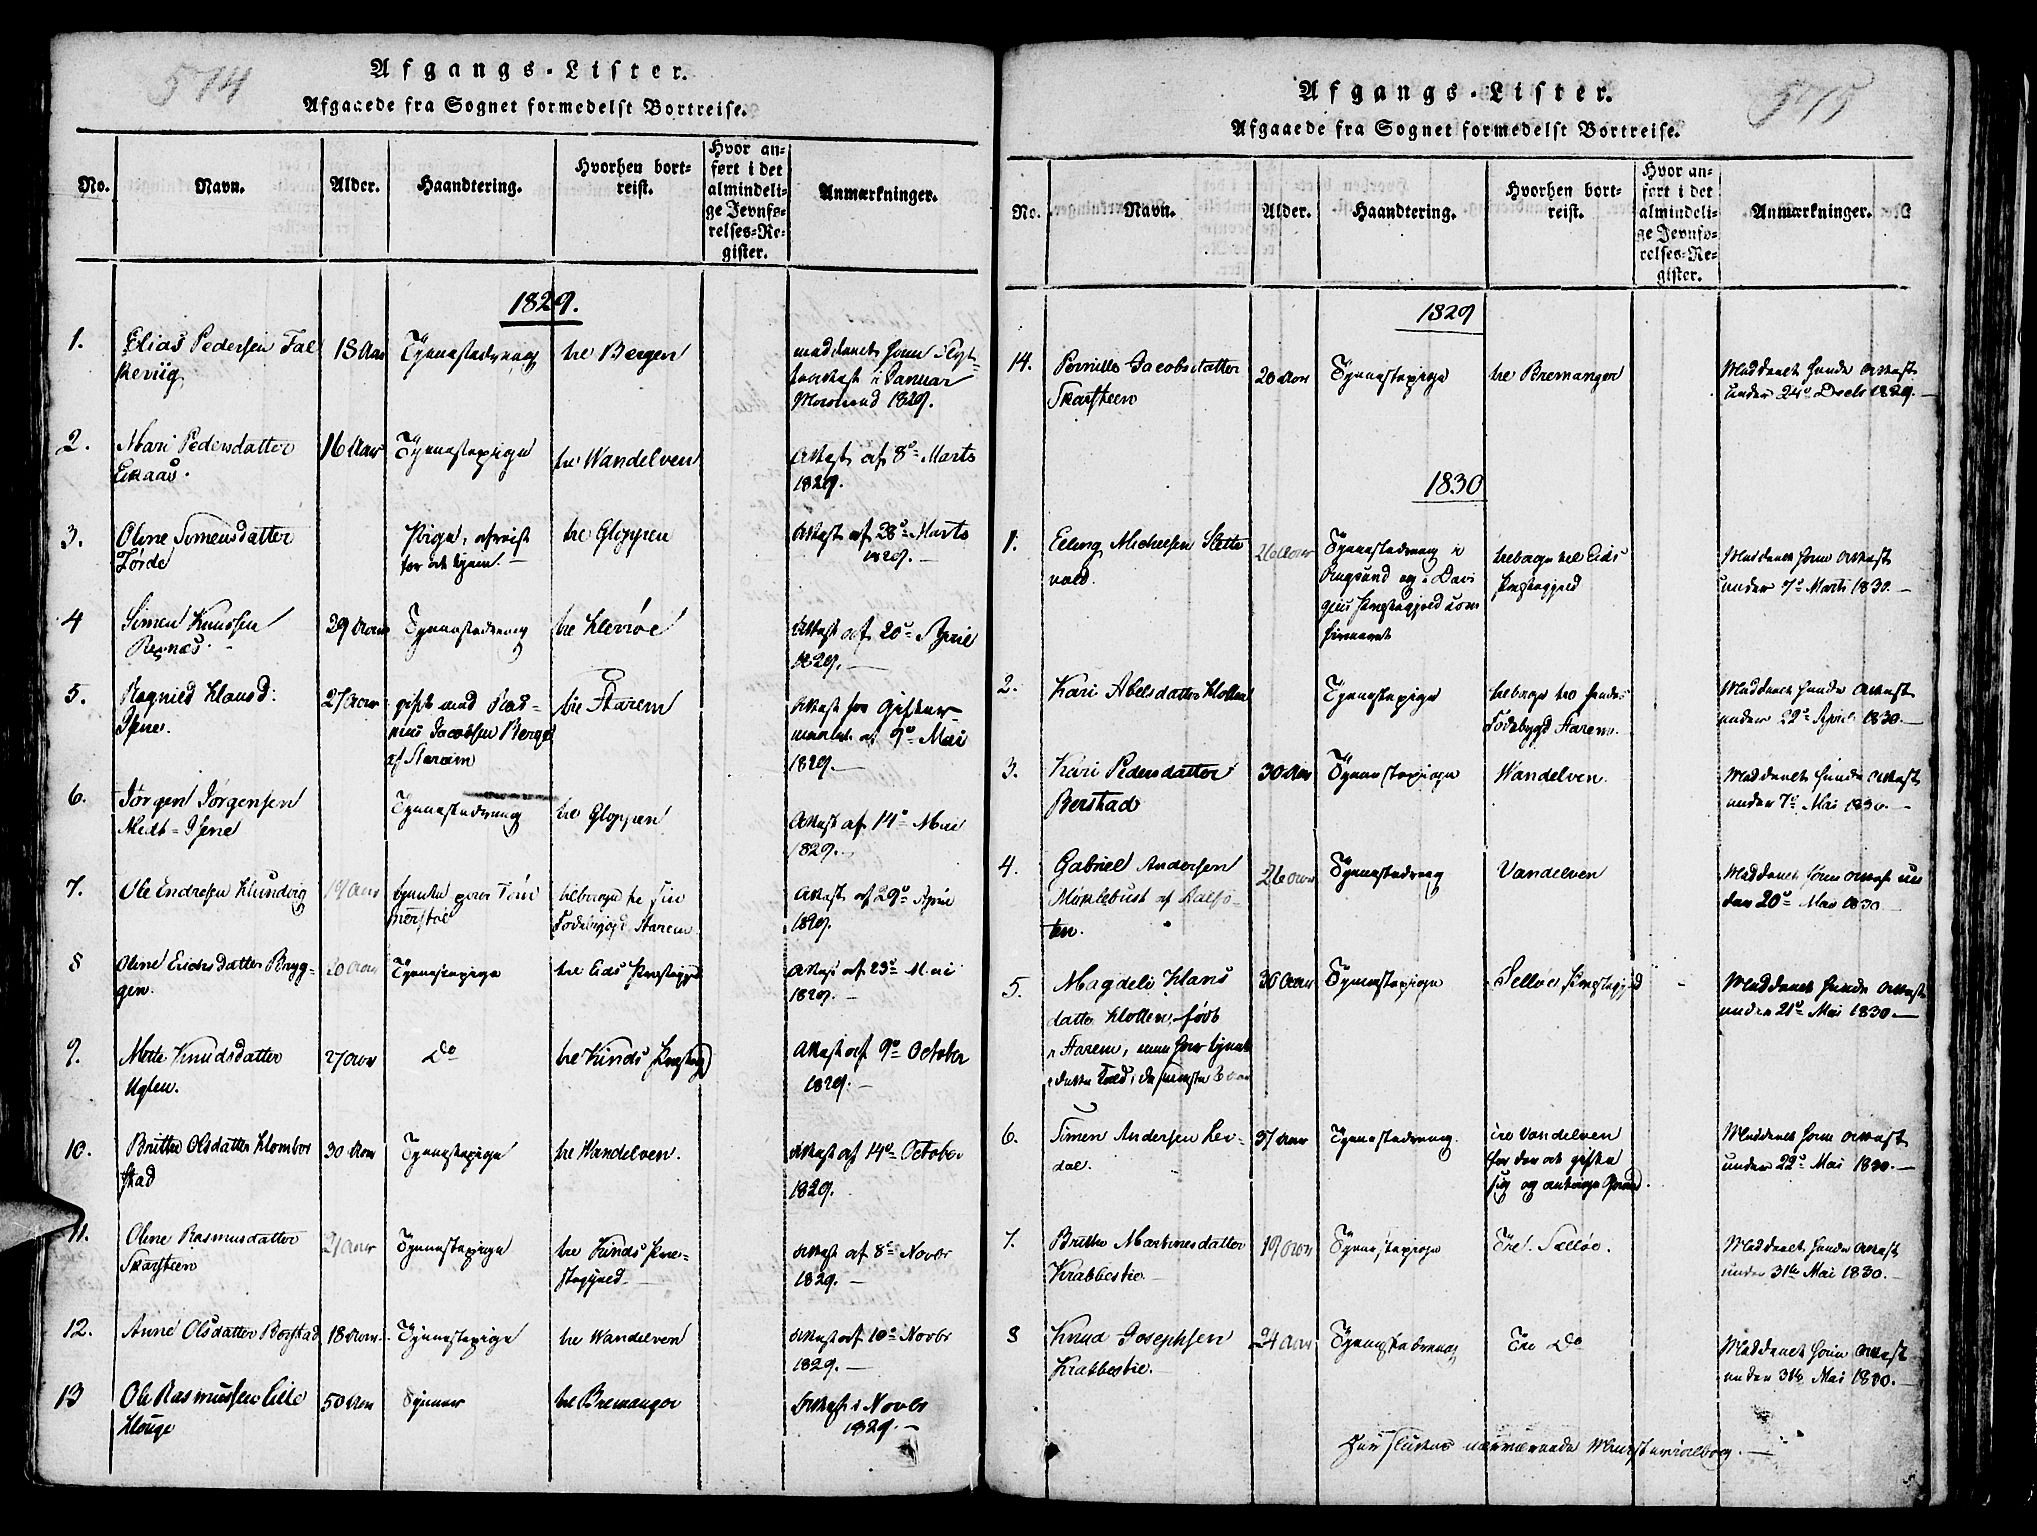 574
Afgangs-Lister.
Afgaaede fra Sognet formedelst Bortreise.
No. Navn. Alder. Haandtering. Hvorhen bortreist. Hvor anført i det almindelige Jevnførelses-Register. Anmærkninger.
1829.
1. Elias Pedersen Fal 18 Aar Tjenestedreng til Bergen meddeelt ham
i Januar
1829.
2. Mari Pedersdatter 16 Aar Tjenestepige til Wandelven Attest af 8de Marts
1829.
3. Oline Simensdatter Pige, til Gloppen Attest af 28de Marts
Förde for at tjene. 1829.
4 Simen Knudsen 29 Aar Tjenestedreng til Attest af 20de April
1829.
5. Ragnild Klausd: 27 Aar gift med Ras- til Starem Attest for Gifter-
mus Jacobsen Berge maal af 9de Mai
af Starem 1829.
6. Jørgen Jørgensen Tjenestedreng til Gloppen Attest af 14de Mai
1829.
7. Ole Endresen Klundvig tilbage til sin Attest af 29de April
Fødebygd Starem 1829.
8 Oline Erichsdatter Bryg- 20 Aar Tjenestepige til Eids Attest af 23de Mai
gen. 1829.
9. Mette Knudsdatter 27 Aar Do til Kinds Attest af 9de October
1829.
10. Britha Olsdatter Klombor 30 Aar Tjenestepige til Wandelven. Attest af 14de October
stad 1829.
11. Oline Rasmusdatter 21 Aar Tjenestepige til Kinds Præ- Attest af 8de Novbr
Skarsteen stegjeld 1829.
12. Anne Olsdatter Borstad 18 Aar. Tjenestepige til Wandelven Attest af 10de Novbr
1829.
13 Ole Rasmussen Lille 50 Aar til Bremanger Attest i Novbr
Klouge 1829.
575
Afgangs-Lister.
Afgaaede fra Sognet formedelst Bortreise.
No. Navn. Alder. Haandtering. Hvorhen bortreist. Hvor anført i det almindelige Jevnførelses-Register. Anmærkninger.
1829
14. Pernille Jacobsdatter 20 Aar Tjenestepige til Bremanger Meddeelt hende Attest
Skarsteen under 24de Decbr 1829.
1830
1. Elling Michelsen Tjenestedreng i tilbage til Eids Meddeelt ham Attest
Rugsund og i Præstegjeld under 7de Marts 1830.
2. Kari Abelsdatter Tjenestepige tilbage til hendes Meddeelt hende Attest
Fødebygd Starem. under 29de April 1830.
3. Kari Pedersdatter 30 Aar Tjenestepige Wandelven. Meddeelt hende Attest
Berstad under 7de Mai 1830.
4. Gabriel Andersen 26 Aar Tjenestedreng Vandelven Meddeelt ham Attest un
Myklebust af Aalfo- der 20de Mai 1830
ten.
5. Magdeli Klaus 30 Aar Tjenestepige Selløe Præstegjeld Meddeelt hende Attest
datter Klotten, født under 21de Mai 1830.
i Starem, men har tjent
6. Simen Andersen Lev- 37 Aar Tjenestedreng. til Vandelven Meddeelt ham Attest
dal. for der at gifte under 22de Mai 1830.
sig og
7. Britha Martinusdatter 19 Aar Tjenestepige Til Selløe. Meddeelt hende Attest
Krabbestie. under 31te Mai 1830.
8 Knud Josephsen 24 Aar Tjenestedreng Til Do Meddeelt ham Attest
Krabbestie. under 31te Mai 1830.
Her sluttes nærværende Ministerialbog.